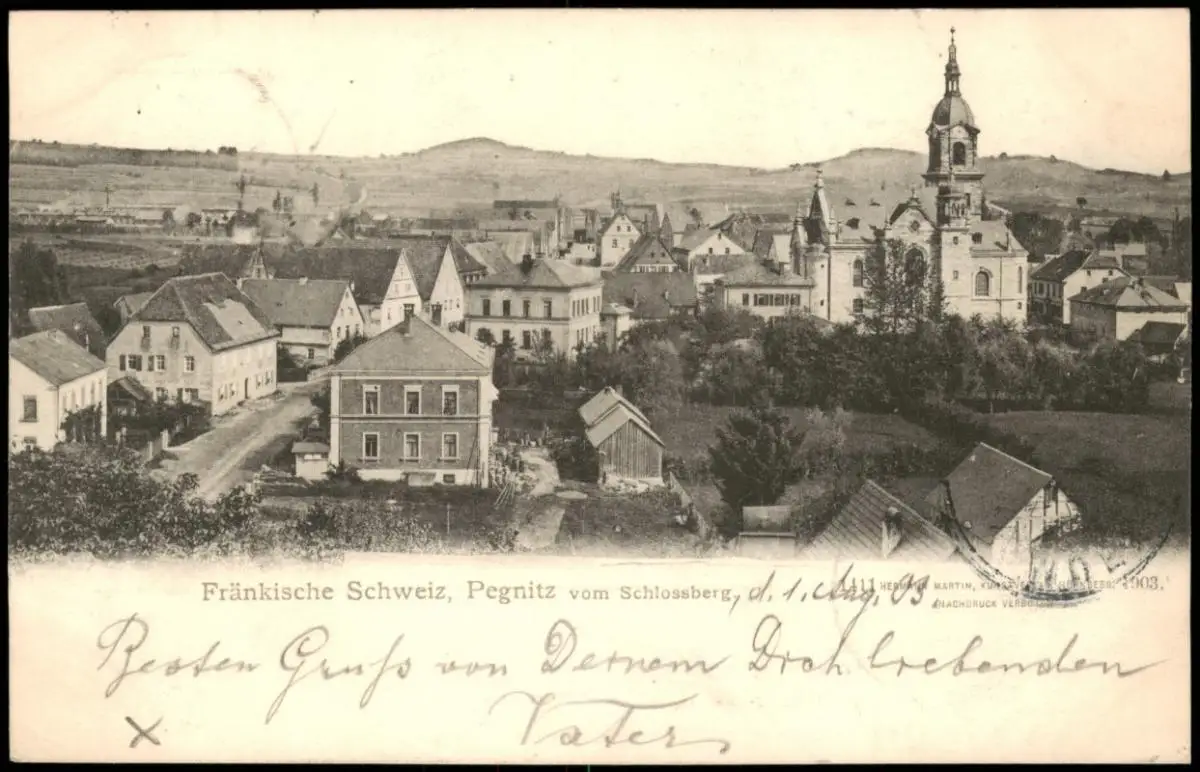 Fränkische Schweiz, Pegnitz vom Schlossberg, d. 1. Aug. 03
4411 HERMANN MARTIN, NÜRNBERG. 1903.
NACHDRUCK VERBOTEN
Besten Gruß von Deinem Dich liebenden
Vater
X